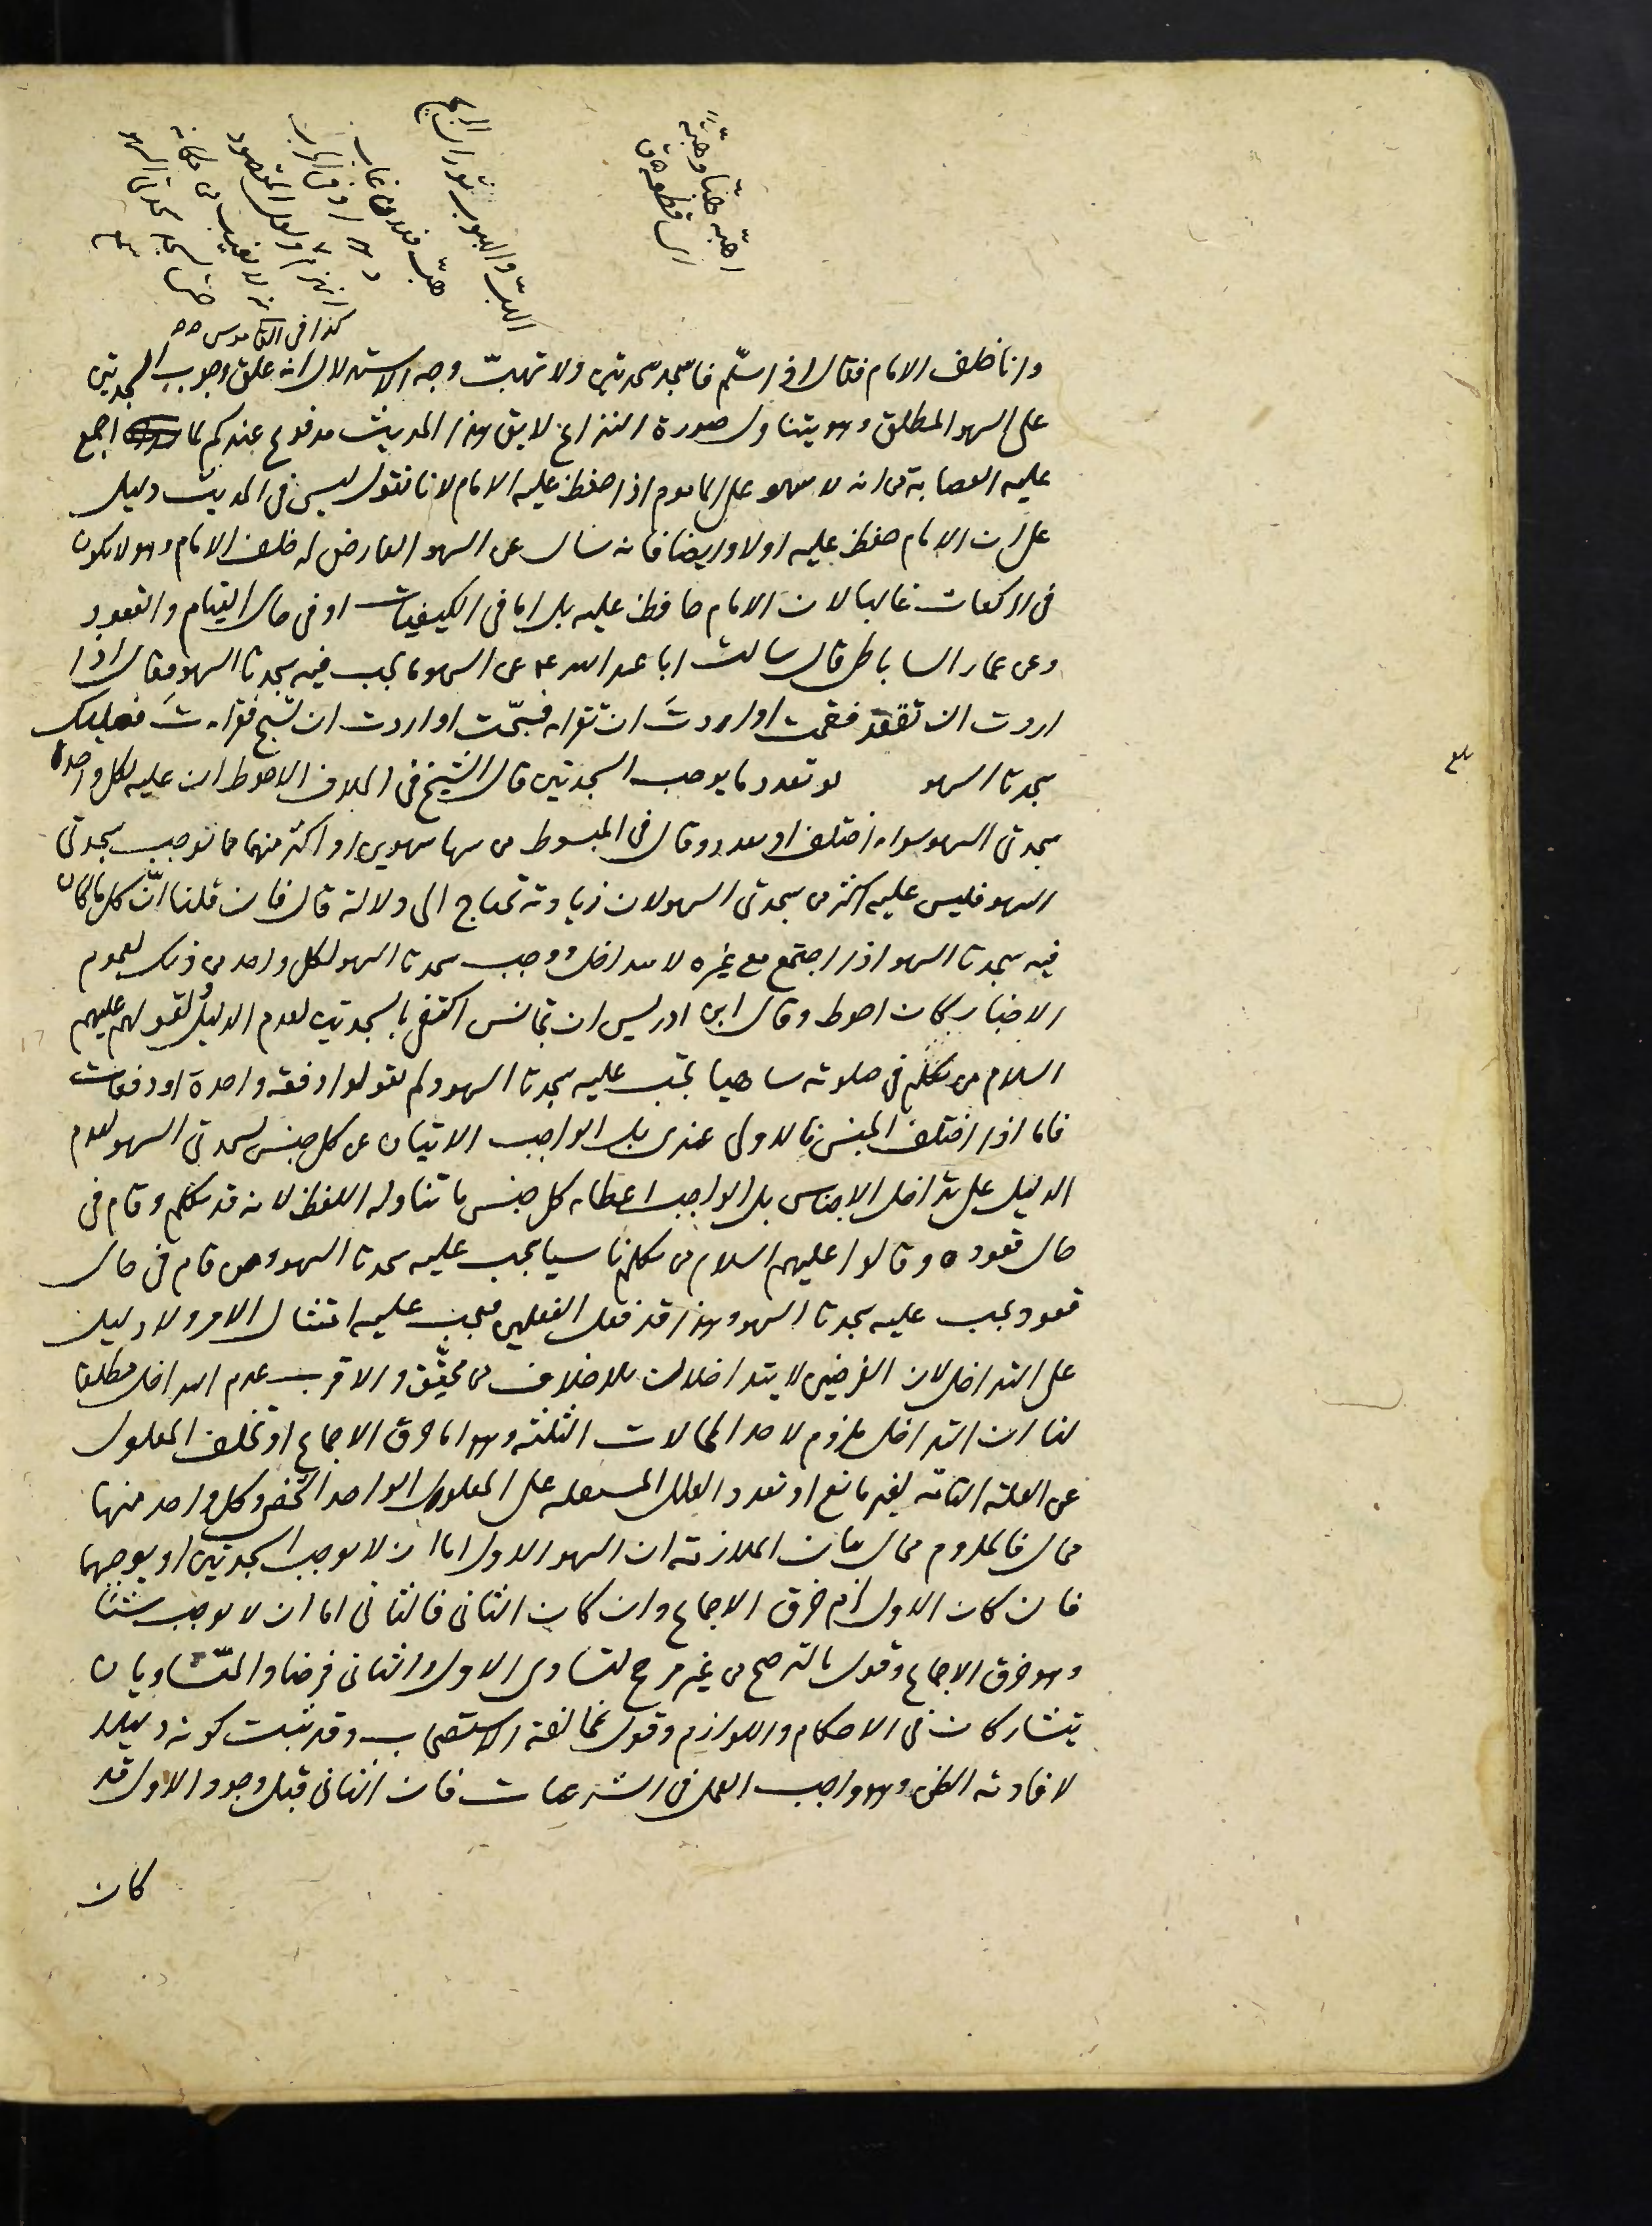 الهبّ والهبوب ثوران الريح
هبّ فلان غاب
كذا في القاموس
اهبّه هبّا وهبّة
اى قطعه ق
وانا خلف الامام فقال اذا سلّم فاسجد سجدتين ولا تهبّ وجه الاستدلال انه علق وجوب السجدتين
على السهو المطلق وهو يتناول صورة النزاع لا يق هذا الحديث مدفوع عندكم لما اجمع
عليه العصابة من انه لا سهو على الماموم اذا حفظ عليه الامام لانا نقول ليس في الحديث دليل
على ان الامام حفظ عليه اولا وايضا فانه سال عن السهو العارض له خلف الامام وهو لا يكون
في الركعات غالبا لان الامام حافظ عليه بل اما في الكيفيات او في حال القيام والقعود
وعن عمار الساباطى قال سالت ابا عبد الله ع عن السهو ما يجب فيه سجدتا السهو فقال اذا
اردت ان تقعد فقمت او اردت ان تقراء فسبّحت او اردت ان تسبح فقراءت فعليك
سجدتا السهو لو تعدد ما يوجب السجدتين قال الشيخ في الخلاف الاحوط ان عليه لكل واحدة
سجدتى السهو سواء اختلف او تعدد وقال في المبسوط من سها سهوين او اكثر منهما مما يوجب سجدتى
السهو فليس عليه اكثر من سجدتى السهو لان زيادته تحتاج الى دلالة قال فان قلنا انّ كل ما كان
فيه سجدتا السهو اذا اجتمع مع غيره لا يتداخل ووجب سجدتا السهو لكل واحد من ذلك لعموم
الاخبار كان احوط وقال ابن ادريس ان تجانس اكتفى بالسجدتين لعدم الدليل ولقولهم عليهم
السلام من تكلم في صلوته ساهيا تجب عليه سجدتا السهو ولم يقولوا دفعة واحدة او دفعات
فاما اذا اختلف الجنس فالاولى عندى بل الواجب الاتيان عن كل جنس بسجدتى السهو لعدم
الدليل على تداخل الاجناس بل الواجب اعطاء كل جنس ما تناوله اللفظ لانه قد تكلم وقام في
حال قعوده وقالوا عليهم السلام من تكلم ناسيا يجب عليه سجدتا السهو ومن قام في حال
قعود يجب عليه سجدتا السهو وهذا قد فعل الفعلين فيجب عليه امتثال الامر ولا دليل
على التداخل لان الفرضين لا يتداخلان بلا خلاف من محقّق والاقرب عدم التداخل مطلقا
لنا ان التداخل ملزوم لاحد المحالات الثلثة وهو اما خرق الاجماع او تخلف المعلول
عن العلة التامة لغير مانع او تعدد العلل المستقلة على المعلول الواحد الشخصى وكل واحد منها
محال فالملزوم محال بيان الملازمة ان السهو الاول اما ان لا يوجب السجدتين او يوجبهما
فان كان الاول لزم خرق الاجماع وان كان الثانى فالثانى اما ان لا يوجب شيئا
وهو خرق الاجماع وقول بالترجيح من غير مرجح لتساوى الاول والثانى فرضا والمتساويان
يتشاركان في الاحكام واللوازم وقول بمخالفة الاستصحاب وقد ثبت كونه دليلا
لافادته الظن وهو واجب العمل في الشرعيات فان الثانى قبل وجود الاول قد
كان
بلغ